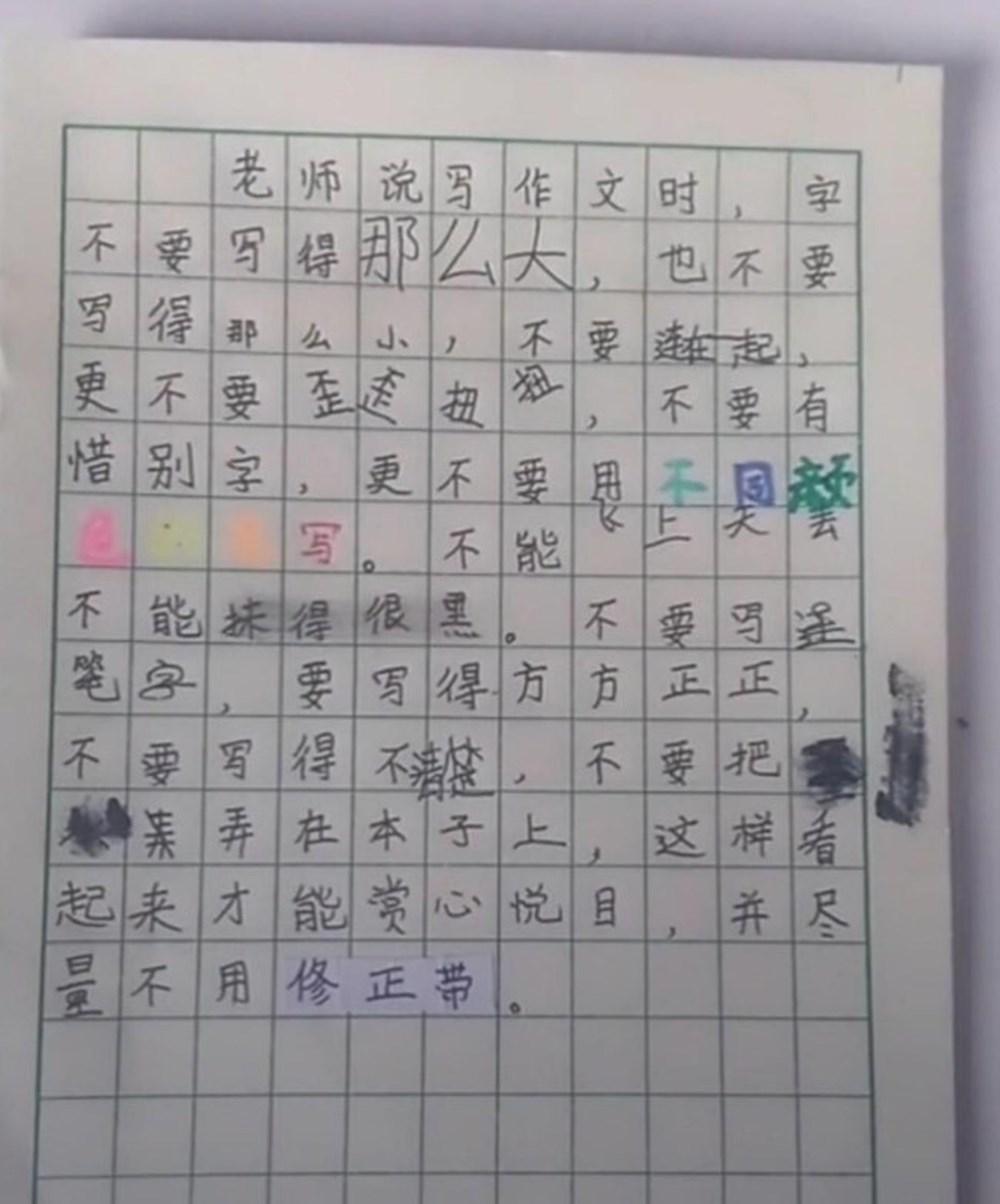 老师说写作文时，字
不要写得那么大，也不要
写得那么小，不要连在一起，
更不要歪歪扭扭，不要有
惜别字，更不要用不同颜
色写。不能飞上天去
不能抹得很黑。不要写连
笔字，要写得方方正正，
不要写得不清楚，不要把
弄在本子上，这样看
起来才能赏心悦目，并尽
量不用修正带。